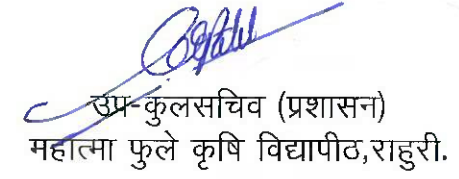 उप-कुलसचिव (प्रशासन)
महात्मा फुले कृषि विद्यापीठ,राहुरी.